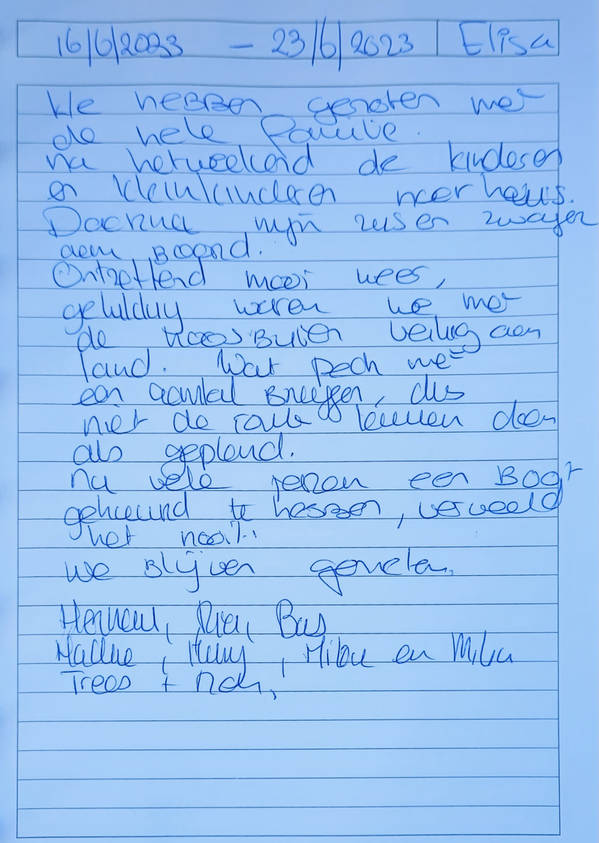 16/6/2023 - 23/6/2023 | Elisa
We hebben genoten met
de hele familie.
na het weekend de kinderen
en kleinkinderen naar huis.
Daarna mijn zus en zwager
aan boord.
Ontzettend mooi weer,
gelukkig waren we met
de hoosbuien veilig aan
land. Wat pech met
een aantal bruggen, dus
niet de route kunnen doen
als gepland.
na vele jaren een boot
gehuurd te hebben, verveeld
het nooit.
we blijven genieten.
Herman, Ria, Bas
en
Trees +